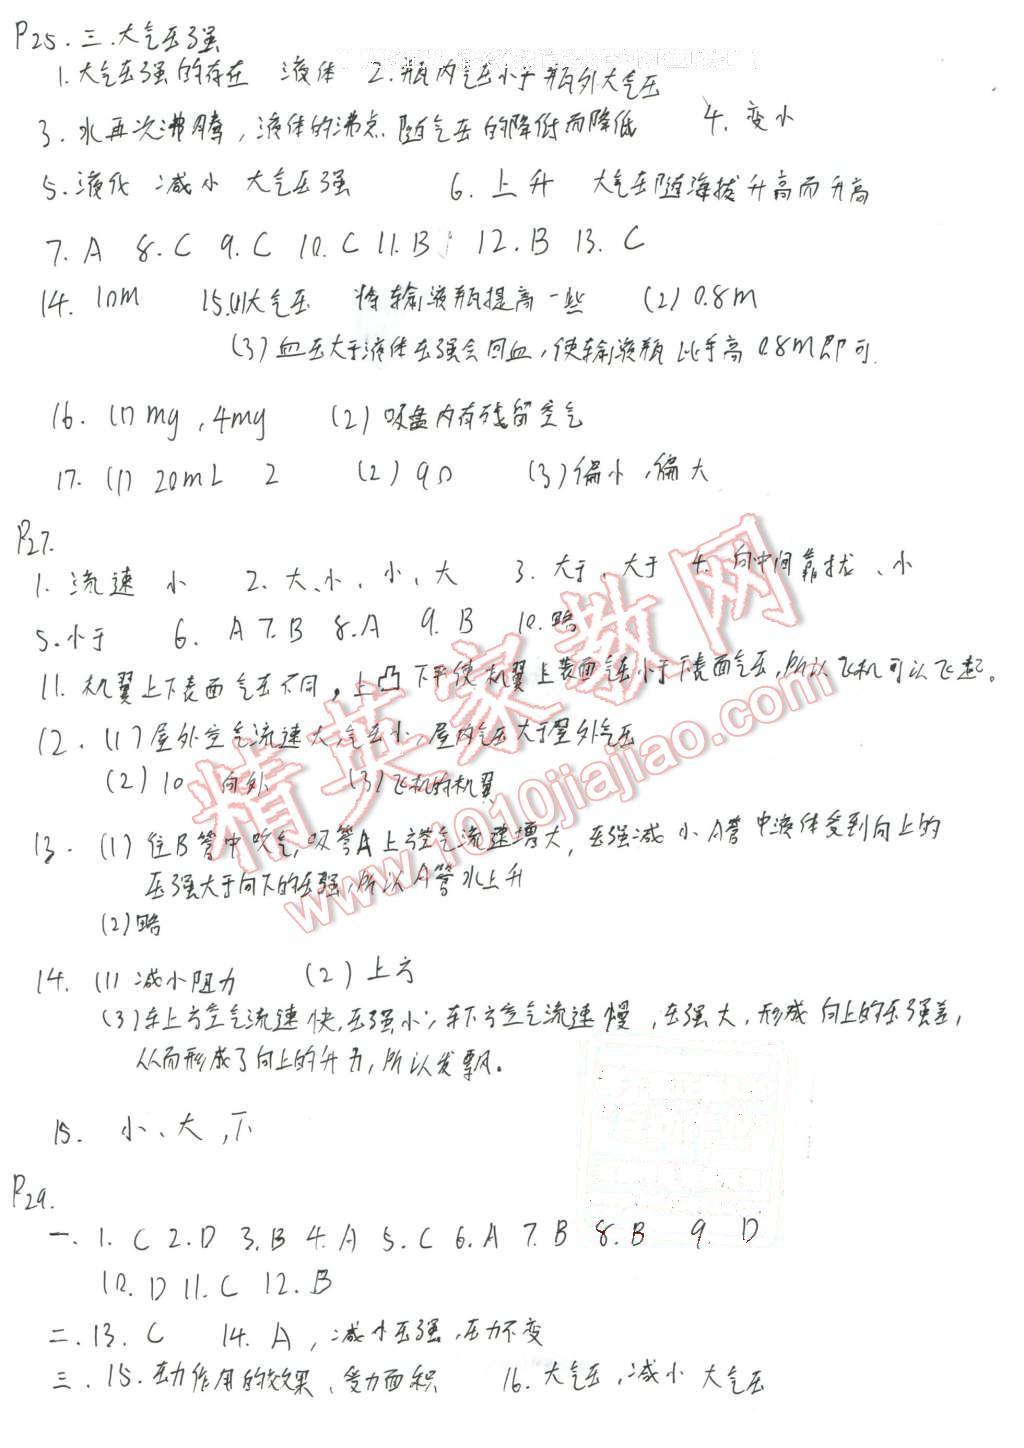 P25.三.大气压强
1.大气压强的存在 液体 2.瓶内气压小于瓶外大气压
3.水再次沸腾,液体的沸点随气压的降低而降低 4.变小
5.液化 减小 大气压强 6.上升 大气压随海拔升高而升高
7.A 8.C 9.C 10.C 11.B 12.B 13.C
14.10m 15.(1)大气压 将输液瓶提高一些 (2)0.8m
(3)血压大于液体压强会回血,使输液瓶比手高0.8m即可.
16.(1)mg,4mg (2)吸盘内有残留空气
17.(1)20mL 2 (2)9n (3)偏小,偏大
P27.
1.流速 小 2.大、小、小、大 3.大于 大于 4.向中间靠拢、小
5.小于 6.A 7.B 8.A 9.B 10.略
11.机翼上下表面气压不同,上凸下平使机翼上表面气压小于下表面气压,所以飞机可以飞起。
12.(1)屋外空气流速大,气压小,屋内气压大于屋外气压
(2)10 向外 (3)飞机的机翼
13.(1)往B管中吹气,吸管A上方空气流速增大,压强减小A管中液体受到向上的
压强大于向下的压强,所以A管水上升
(2)略
14.(1)减小阻力 (2)上方
(3)车上方空气流速快,压强小;车下方空气流速慢,压强大,形成向上的压强差,
从而形成了向上的升力,所以发飘。
15.小、大,下
P29.
一.1.C 2.D 3.B 4.A 5.C 6.A 7.B 8.B 9.D
10.D 11.C 12.B
二.13.C 14.A,减小压强,压力不变
三.15.压力作用的效果、受力面积 16.大气压,减小 大气压
精英家教网
www.1010jiajiao.com